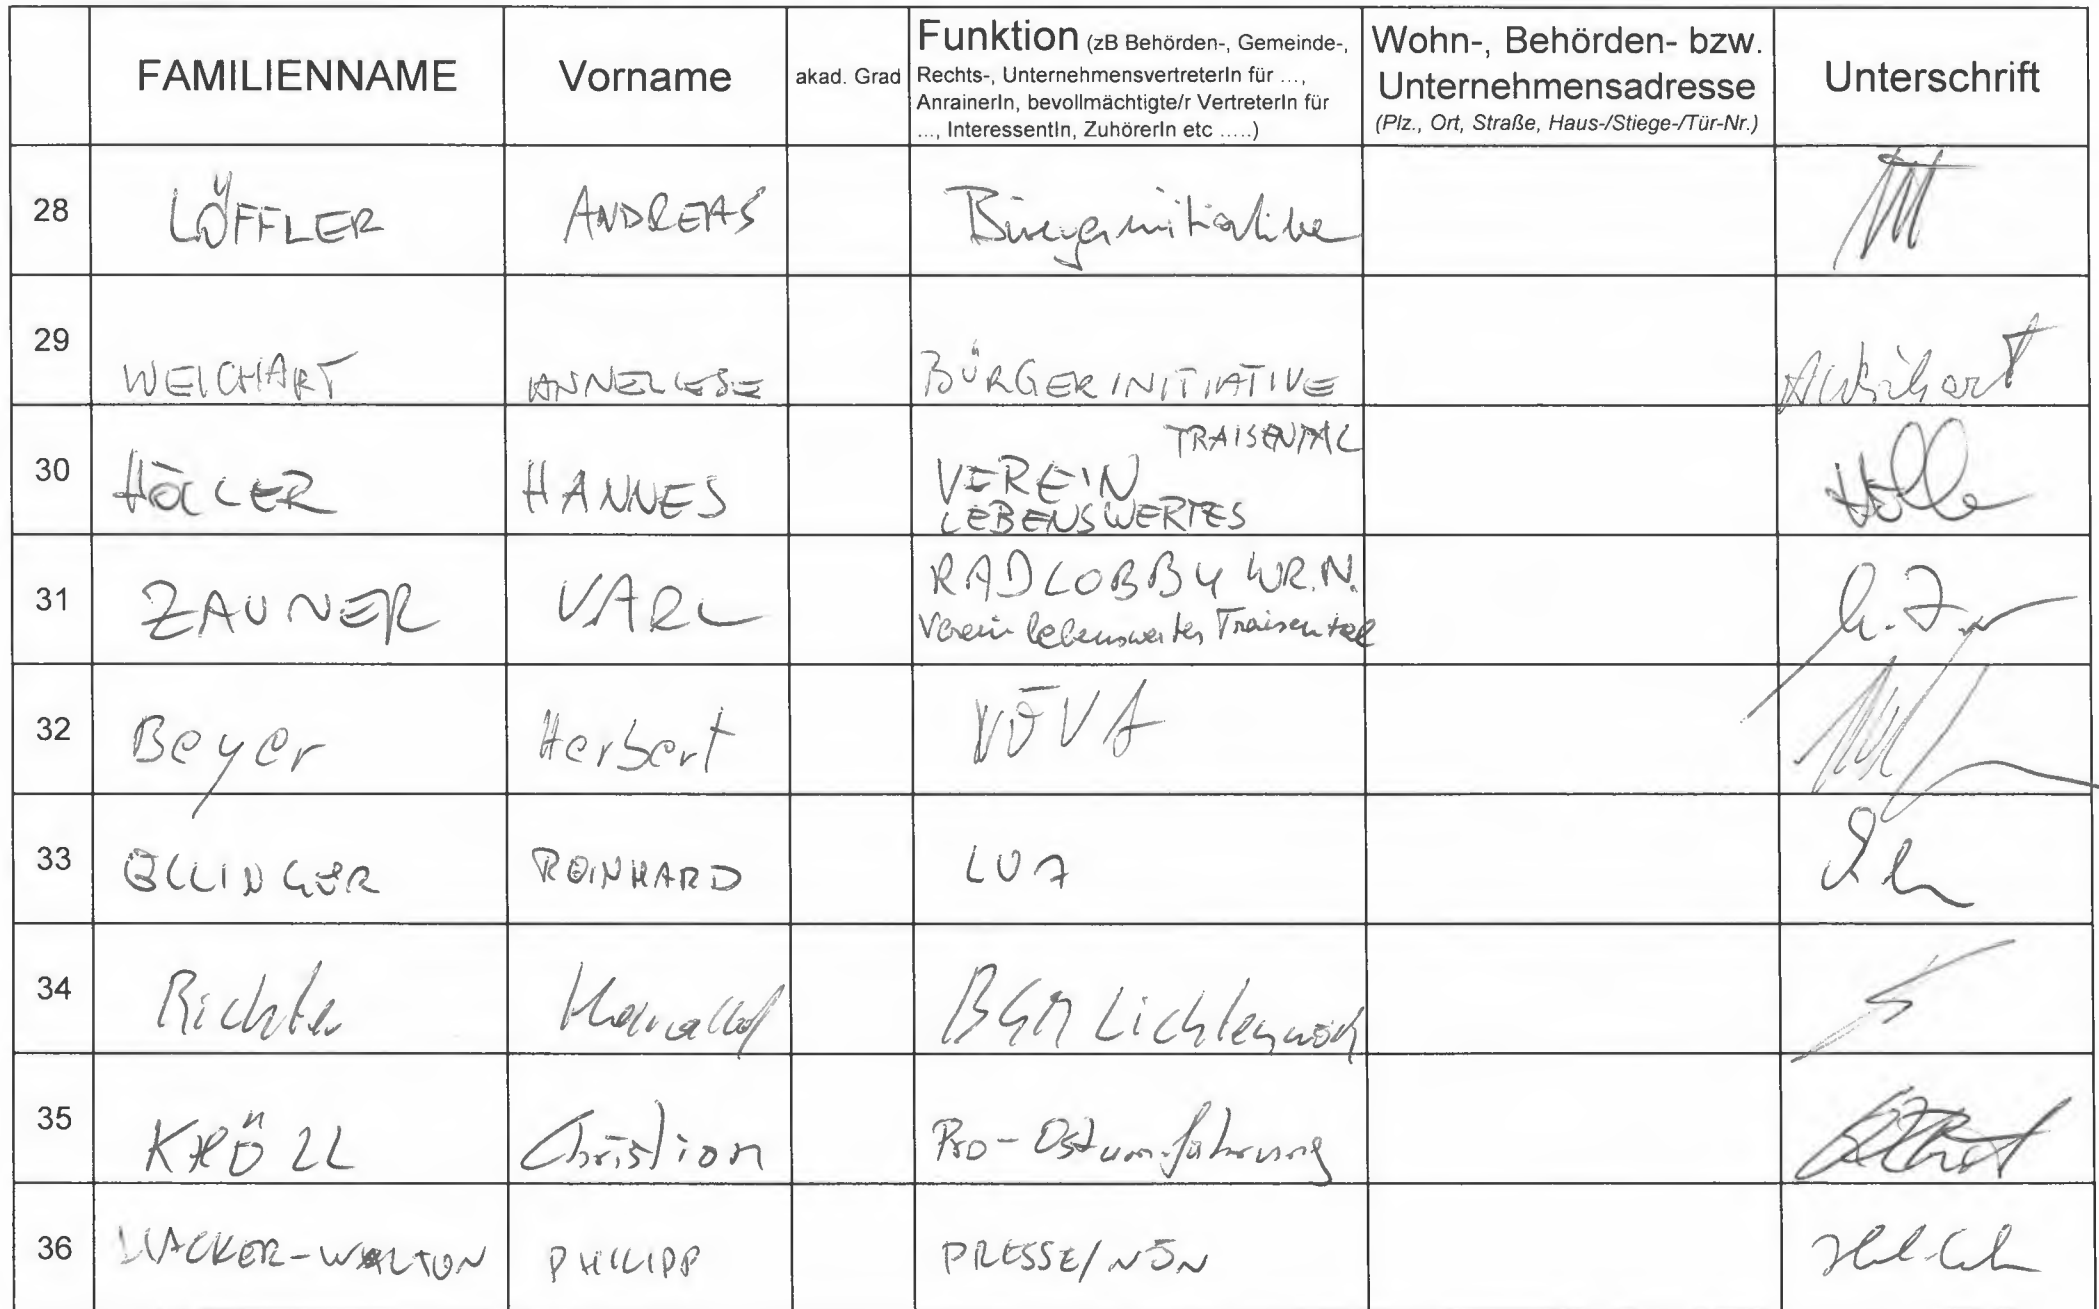 FAMILIENNAME Vorname akad. Grad Funktion (zB Behörden-, Gemeinde-,
Rechts-, UnternehmensvertreterIn für ...,
AnrainerIn, bevollmächtigte/r VertreterIn für
..., InteressentIn, ZuhörerIn etc .....)
Wohn-, Behörden- bzw.
Unternehmensadresse
(Plz., Ort, Straße, Haus-/Stiege-/Tür-Nr.)
Unterschrift
28 LÖFFLER ANDREAS Bürgerinitiative
29 WEICHART ANNELIESE BÜRGERINITIATIVE
30 HÖLLER HANNES VEREIN TRAISENTAL
LEBENSWERTES
31 ZAUNER RADLOBBY WR.N.
Verein lebenswertes Traisental
32 Beyer Herbert
33 ELLINGER REINHARD LUA
34 Richter BGM Lichtenwörth
35 KRÖLL Christian Pro-Ostumfahrung
36 HACKER-WALTON PHILIPP PRESSE/NÖN